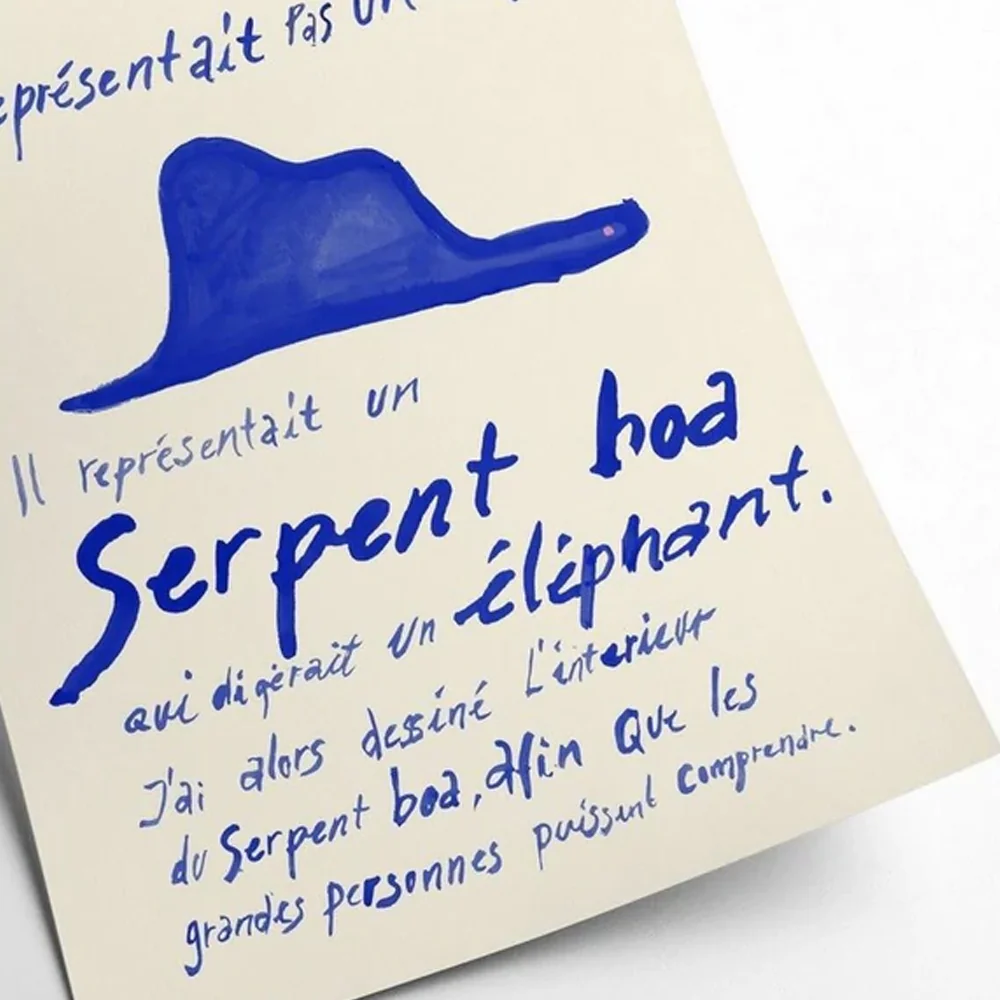 eprésentait Pas un
Il représentait un
Serpent boa
qui digérait un éléphant.
J'ai alors dessiné L'interieur
du Serpent boa, afin Que les
grandes personnes puissent comprendre.